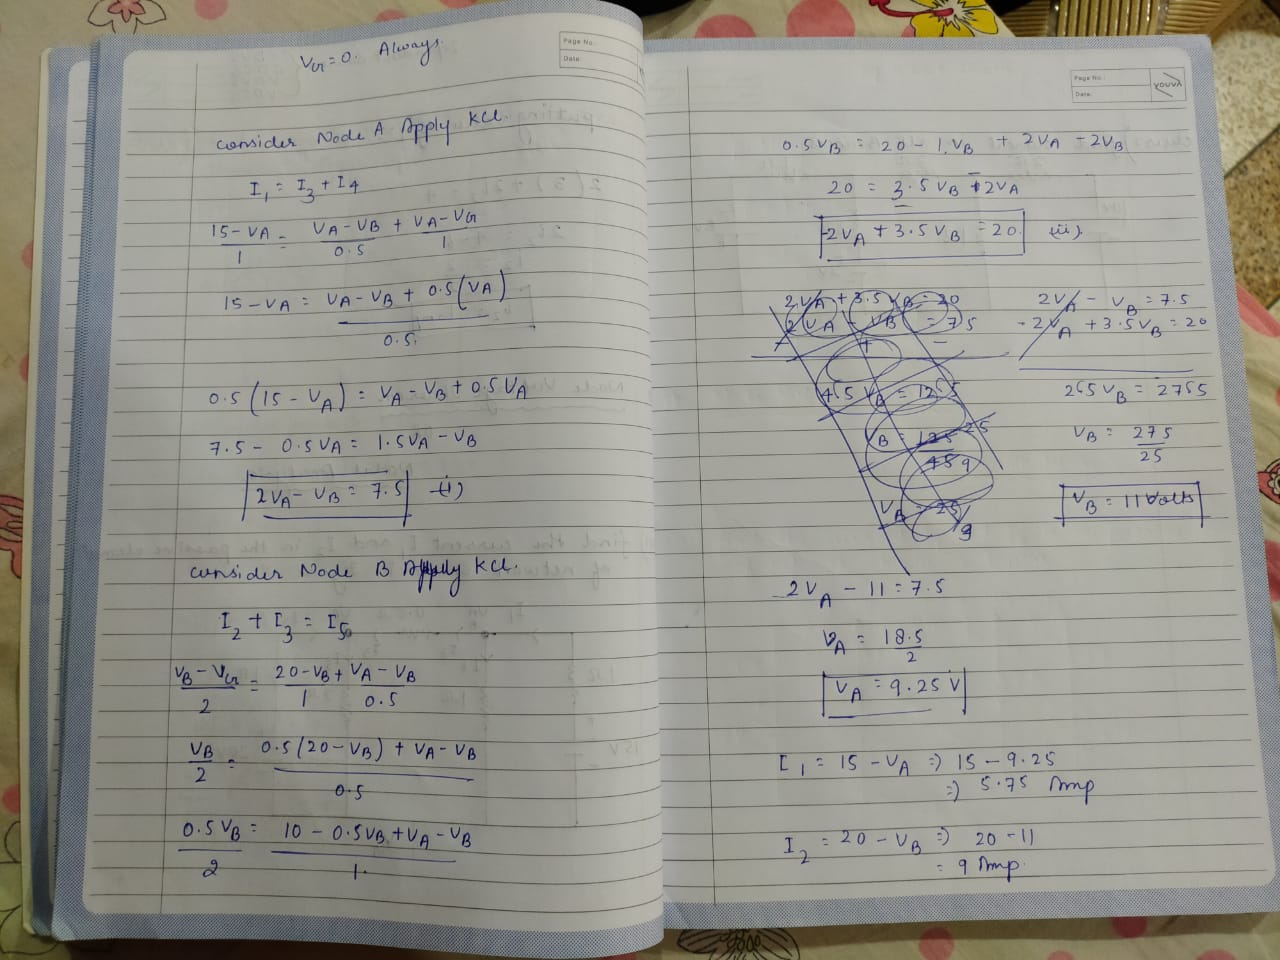 VG = 0. Always.
Page No.:
Date:
consider Node A Apply KCL
I1 = I3 + I4
15 - VA / 1 = VA - VB / 0.5 + VA - VG / 1
15 - VA = VA - VB + 0.5 (VA) / 0.5
0.5 (15 - VA) = VA - VB + 0.5 VA
7.5 - 0.5 VA = 1.5 VA - VB
2VA - VB = 7.5 (i)
consider Node B Apply KCL.
I2 + I3 = I5
VB - VG / 2 = 20 - VB / 1 + VA - VB / 0.5
VB / 2 = 0.5 (20 - VB) + VA - VB / 0.5
0.5 VB / 2 = 10 - 0.5 VB + VA - VB / 1.
Page No.:
Date:
youva
0.5 VB = 20 - 1. VB + 2VA - 2VB
20 = 3.5 VB - 2VA
-2VA + 3.5 VB = 20. (ii)
2VA - VB = 7.5
-2VA + 3.5 VB = 20
2.5 VB = 27.5
VB = 275 / 25
VB = 11 Volts
2VA - 11 = 7.5
VA = 18.5 / 2
VA = 9.25 V
I1 = 15 - VA => 15 - 9.25
=> 5.75 Amp
I2 = 20 - VB => 20 - 11
= 9 Amp.